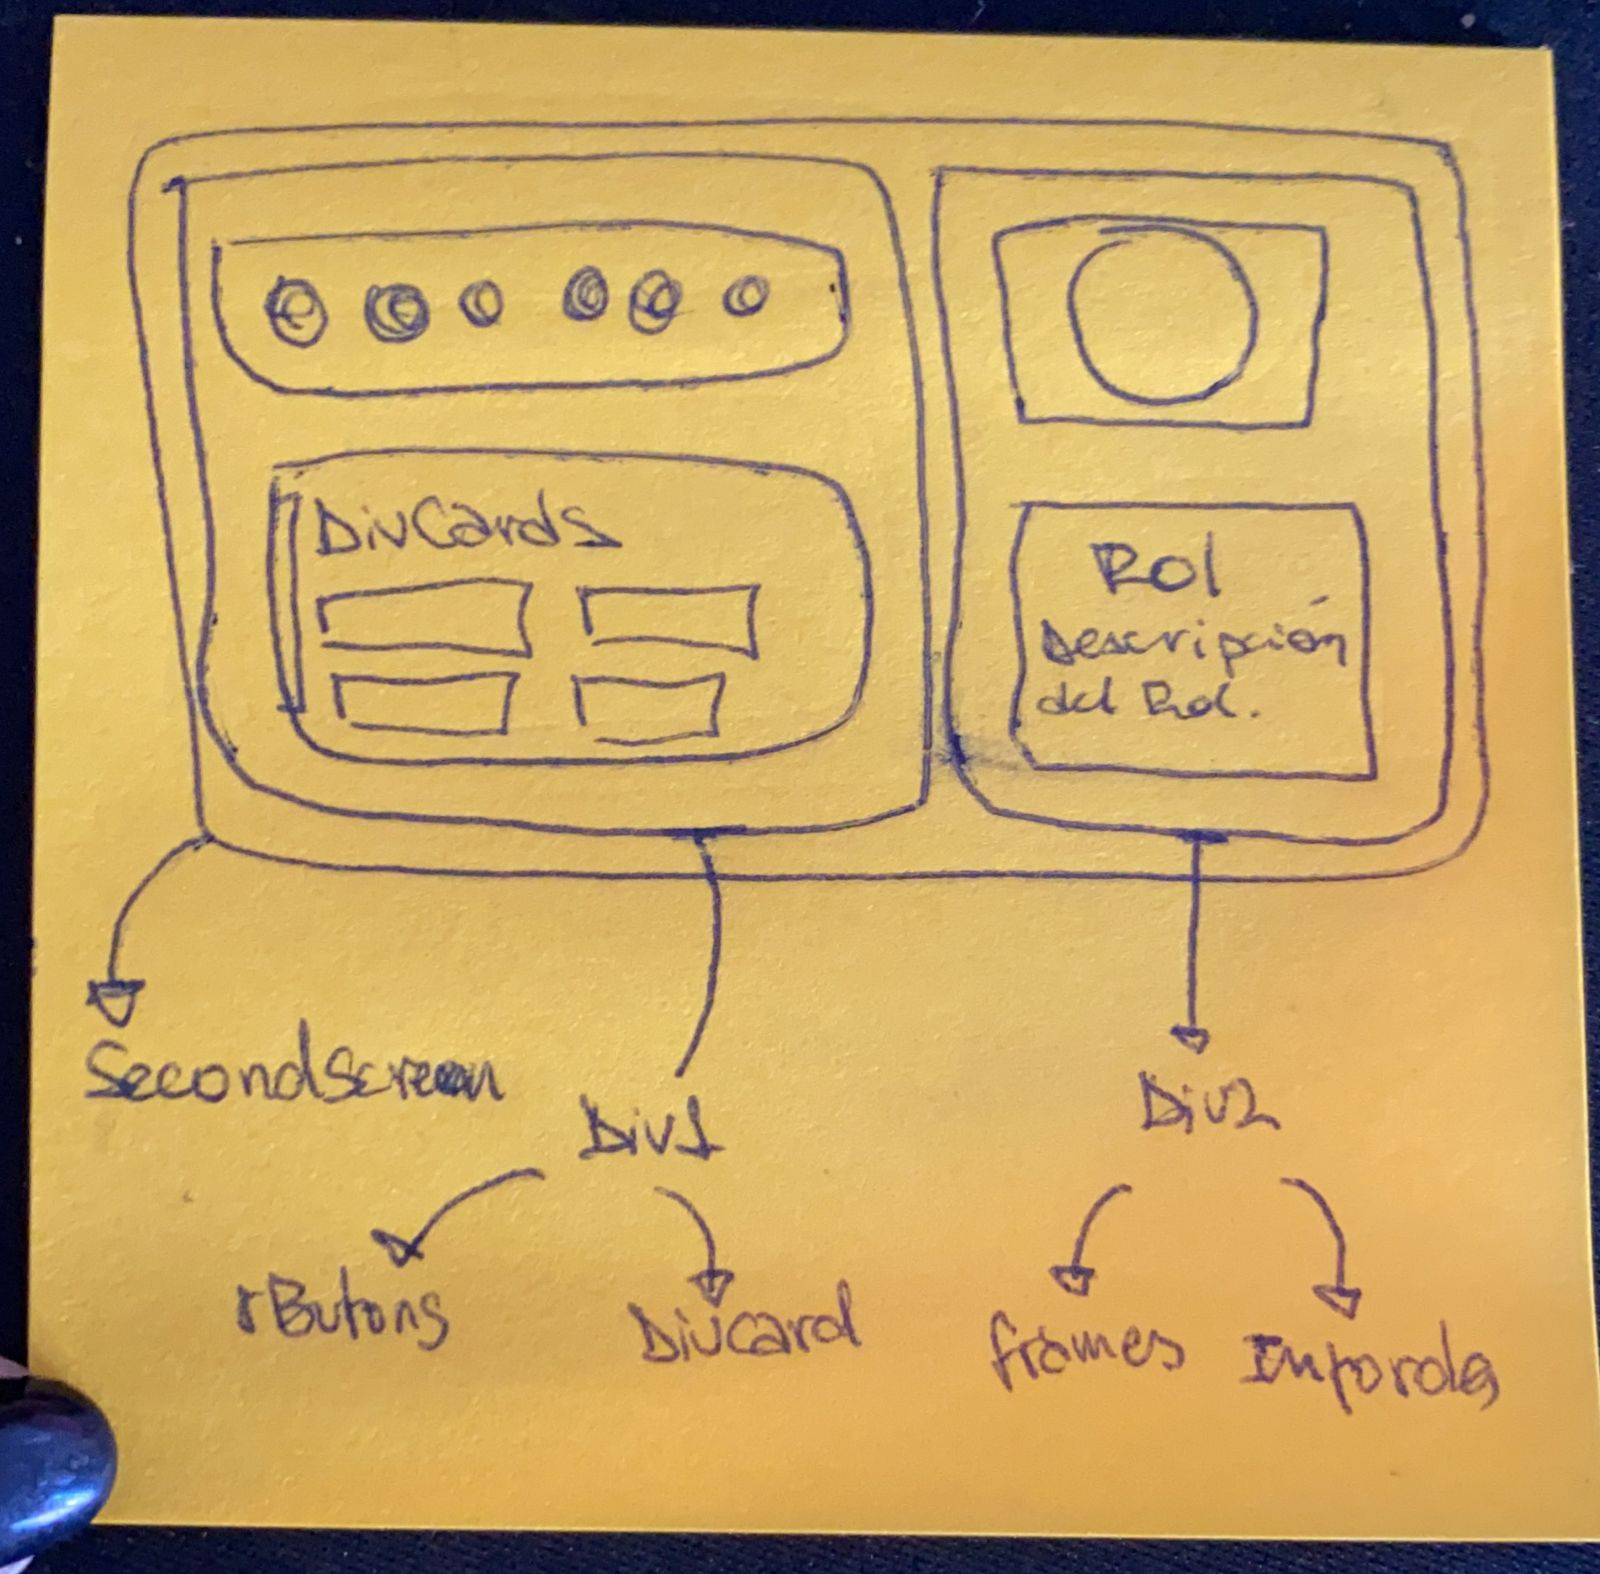 DivCards
Rol
Descripción
del Rol.
SecondScreen
Div1
Div2
rButons
DivCard
frames